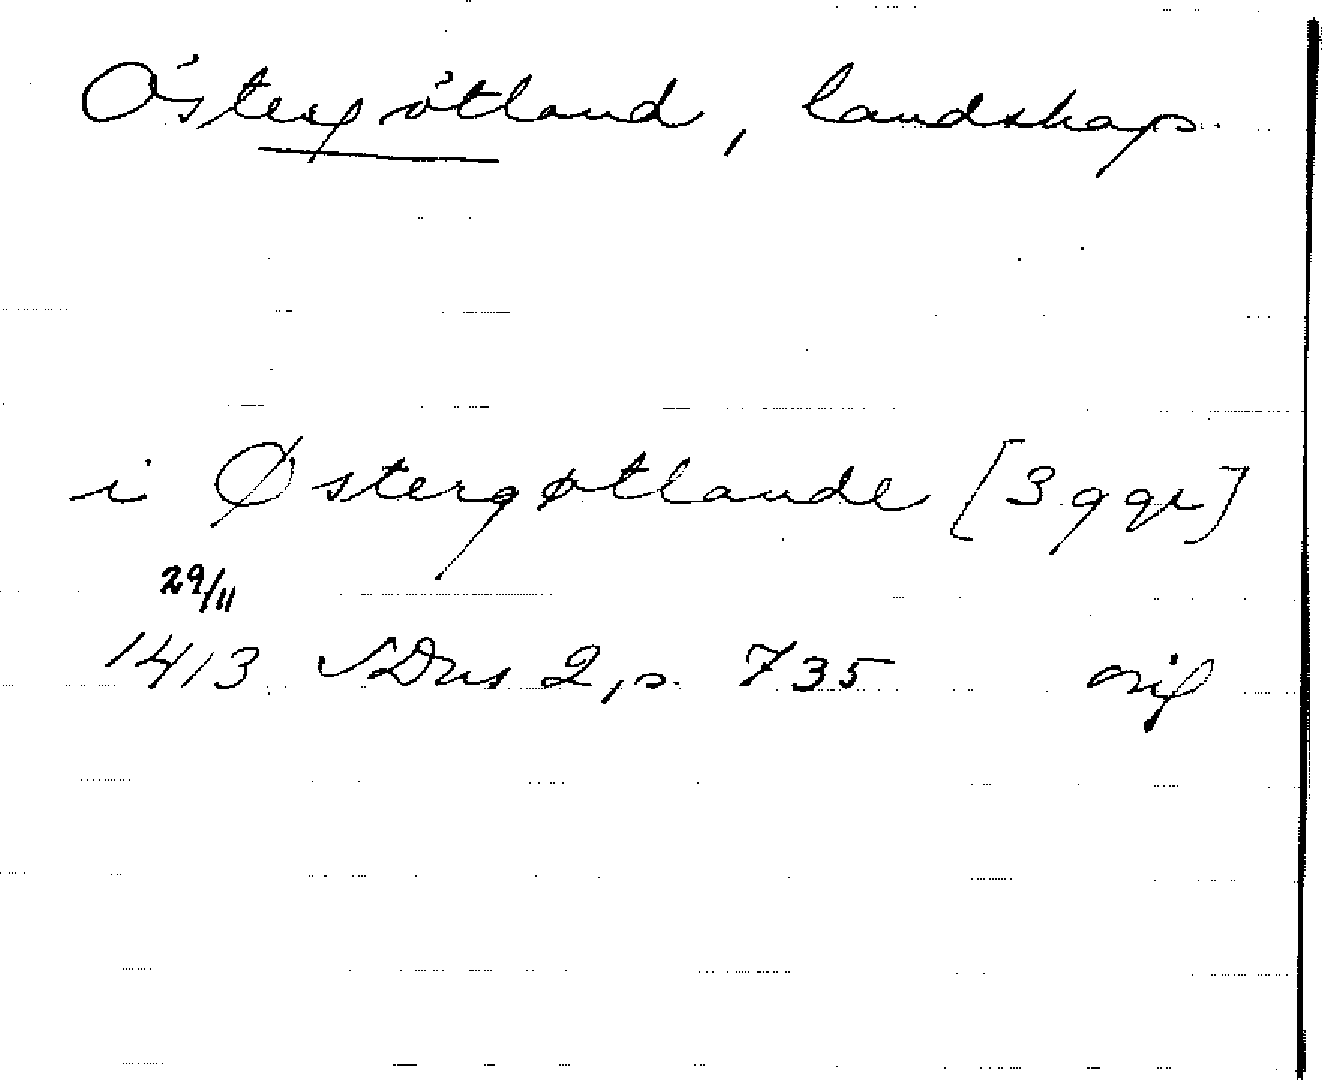 Östergötland, landskap
i Østergøtlande [3 ggr]
29/11
1413 SDns 2, s. 735 orig